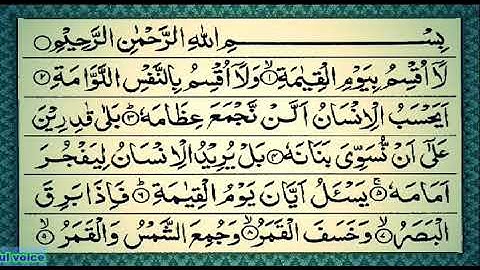 بِسْمِ اللّٰهِ الرَّحْمٰنِ الرَّحِيْمِ
لَاۤ اُقْسِمُ بِيَوْمِ الْقِيٰمَةِ ۙ﴿۱﴾ وَلَاۤ اُقْسِمُ بِالنَّفْسِ اللَّوَّامَةِ ﴿۲﴾
اَيَحْسَبُ الْاِنْسَانُ اَلَّنْ نَّجْمَعَ عِظَامَهٗ ؕ﴿۳﴾ بَلٰى قٰدِرِيْنَ
عَلٰۤى اَنْ نُّسَوِّىَ بَنَانَهٗ ﴿۴﴾ بَلْ يُرِيْدُ الْاِنْسَانُ لِيَفْجُرَ
اَمَامَهٗ ۚ﴿۵﴾ يَسْـَٔلُ اَيَّانَ يَوْمُ الْقِيٰمَةِ ؕ﴿۶﴾ فَاِذَا بَرِقَ
الْبَصَرُ ۙ﴿۷﴾ وَخَسَفَ الْقَمَرُ ۙ﴿۸﴾ وَجُمِعَ الشَّمْسُ وَالْقَمَرُ ۙ﴿۹﴾
ul voice